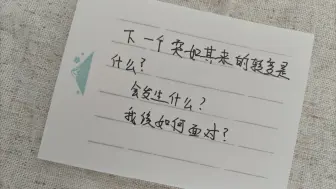 下一个突如其来的转变是
什么？
会发生什么？
我该如何面对？